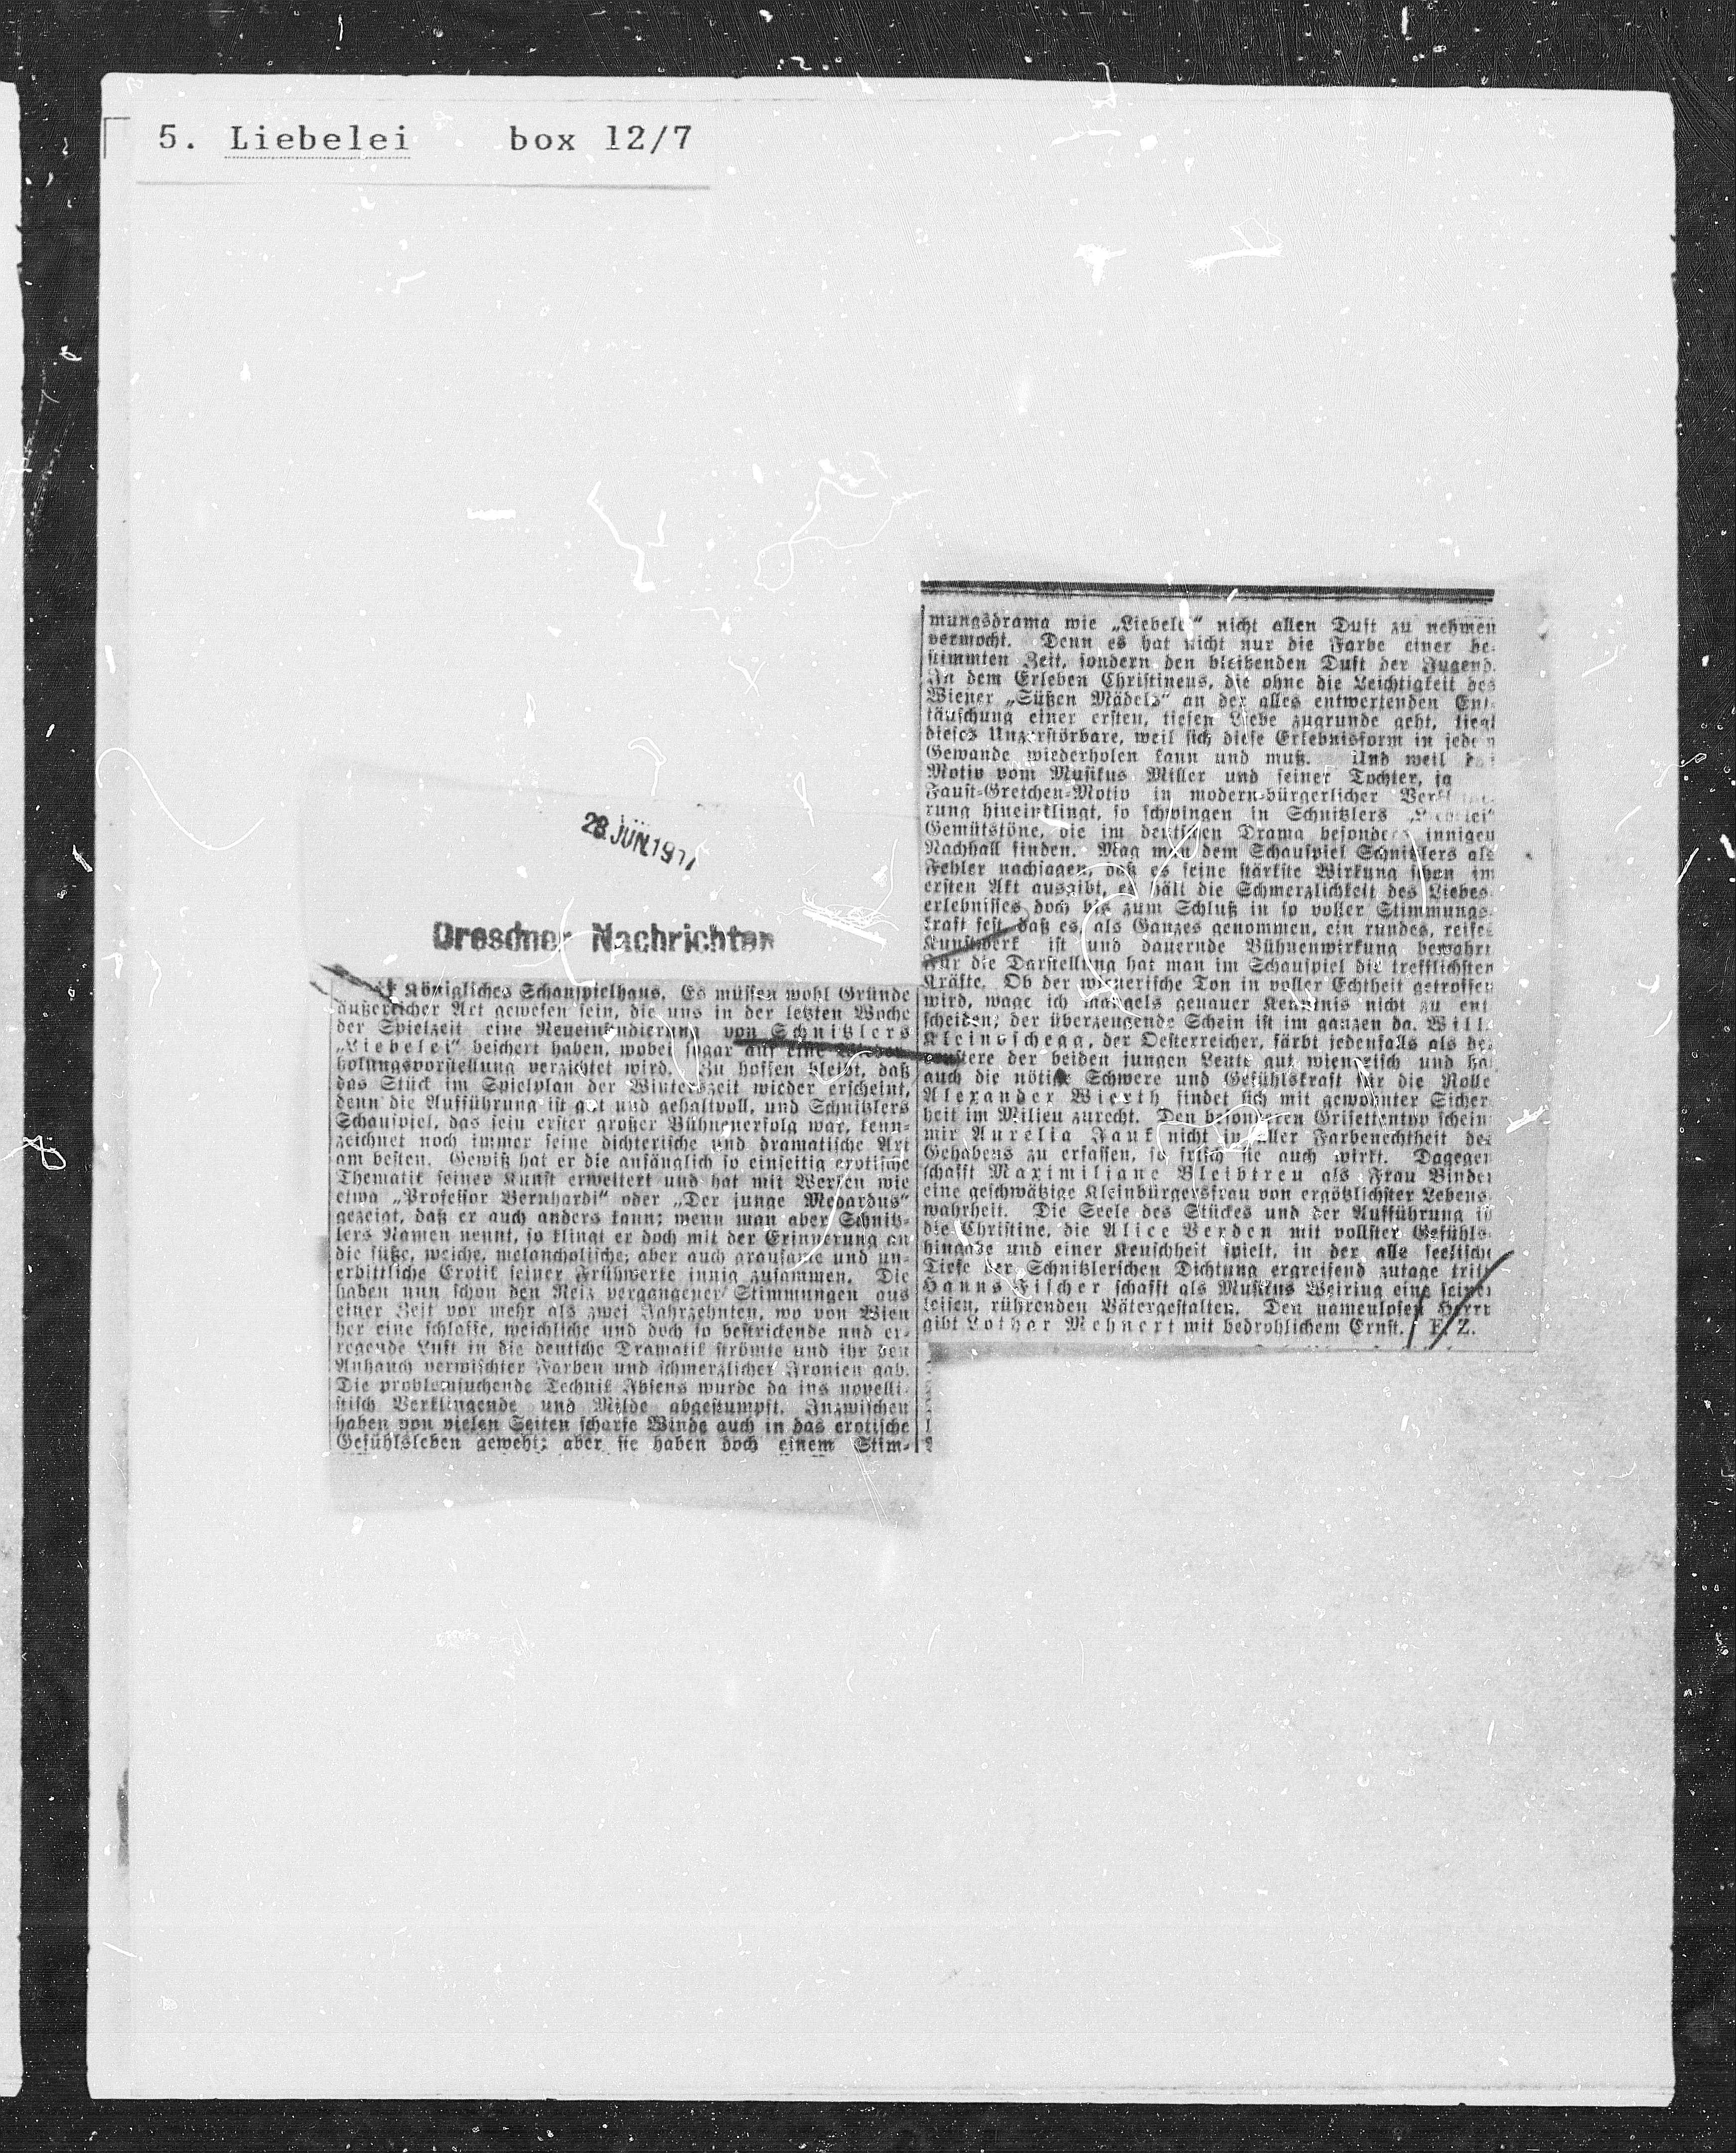 5. Liebelei box 12/7
28. JUN. 191
Dresdner Nachrichten
Königliches Schauspielhaus. Es müssen wohl Gründe
äußerlicher Art gewesen sein, die uns in der letzten Woche
der Spielzeit eine Neueinstudierung von Schnitzlers
„Liebelei“ beschert haben, wobei sogar auf eine Wieder-
holungsvorstellung verzichtet wird. Zu hoffen bleibt, daß
das Stück im Spielplan der Winterszeit wieder erscheint,
denn die Aufführung ist gut und gehaltvoll, und Schnitzlers
Schauspiel, das sein erster großer Bühnenerfolg war, kenn-
zeichnet noch immer seine dichterische und dramatische Art
am besten. Gewiß hat er die anfänglich so einseitig erotische
Thematik seiner Kunst erweitert und hat mit Werken wie
etwa „Professor Bernhardi“ oder „Der junge Medardus“
gezeigt, daß er auch anders kann; wenn man aber Schnitz-
lers Namen nennt, so klingt er doch mit der Erinnerung an
die süße, weiche, melancholische, aber auch grausame und un-
erbittliche Erotik seiner Frühwerke innig zusammen. Die
haben nun schon den Reiz vergangener Stimmungen aus
einer Zeit vor mehr als zwei Jahrzehnten, wo von Wien
her eine schlaffe, weichliche und doch so bestrickende und er-
regende Luft in die deutsche Dramatik strömte und ihr den
Anhauch verwischter Farben und schmerzlicher Ironien gab.
Die problemsuchende Technik Ibsens wurde da ins novelli-
stisch Verklingende und Milde abgestumpft. Inzwischen
haben von vielen Seiten scharfe Winde auch in das erotische
Gefühlsleben geweht; aber sie haben doch einem Stim-
mungsdrama wie „Liebelei“ nicht allen Duft zu nehmen
vermocht. Denn es hat nicht nur die Farbe einer be-
stimmten Zeit, sondern den bleibenden Duft der Jugend.
In dem Erleben Christinens, die ohne die Leichtigkeit des
Wiener „Süßen Mädels“ an der alles entwertenden Ent-
täuschung einer ersten, tiefen Liebe zugrunde geht, liegt
dieses Unzerstörbare, weil sich diese Erlebnisform in jedem
Gewande wiederholen kann und muß. Und weil
Motiv vom Musikus Miller und seiner Tochter, ja
Faust-Gretchen-Motiv in modern-bürgerlicher
rung hineinklingt, so schwingen in Schnitzlers „Liebelei“
Gemütstöne, die im deutschen Drama besonders innigen
Nachhall finden. Mag man dem Schauspiel Schnitzlers als
Fehler nachsagen, daß es seine stärkste Wirkung schon im
ersten Akt ausgibt, es hält die Schmerzlichkeit des Liebes-
erlebnisses doch bis zum Schluß in so voller Stimmungs-
kraft fest, daß es, als Ganzes genommen, ein rundes, reifes
Kunstwerk ist und dauernde Bühnenwirkung bewahrt
Für die Darstellung hat man im Schauspiel die trefflichsten
Kräfte. Ob der wienerische Ton in voller Echtheit getroffen
wird, wage ich mangels genauer Kenntnis nicht zu ent
scheiden; der überzeugende Schein ist im ganzen da. Will
Kleinoschegg, der Oesterreicher, färbt jedenfalls als de
ernstere der beiden jungen Leute gut wienerisch und ha
auch die nötige Schwere und Gefühlskraft für die Rolle
Alexander Wierth findet sich mit gewohnter Sicher
heit im Milieu zurecht. Den besonderen Grisettentyp schein
mir Aurelia Jank nicht in aller Farbenechtheit des
Gehabens zu erfassen, so frisch sie auch wirkt. Dagegen
schafft Maximiliane Bleibtreu als Frau Binder
eine geschwätzige Kleinbürgersfrau von ergötzlichster Lebens
wahrheit. Die Seele des Stückes und der Aufführung is
die Christine, die Alice Verden mit vollster Gefühls
hingabe und einer Keuschheit spielt, in der alle seelische
Tiefe der Schnitzlerschen Dichtung ergreifend zutage tritt
Hanns Fischer schafft als Musikus Weiring eine seiner
leisen, rührenden Vätergestalten. Den namenlosen Herrn
gibt Lothar Mehnert mit bedrohlichem Ernst. F. Z.